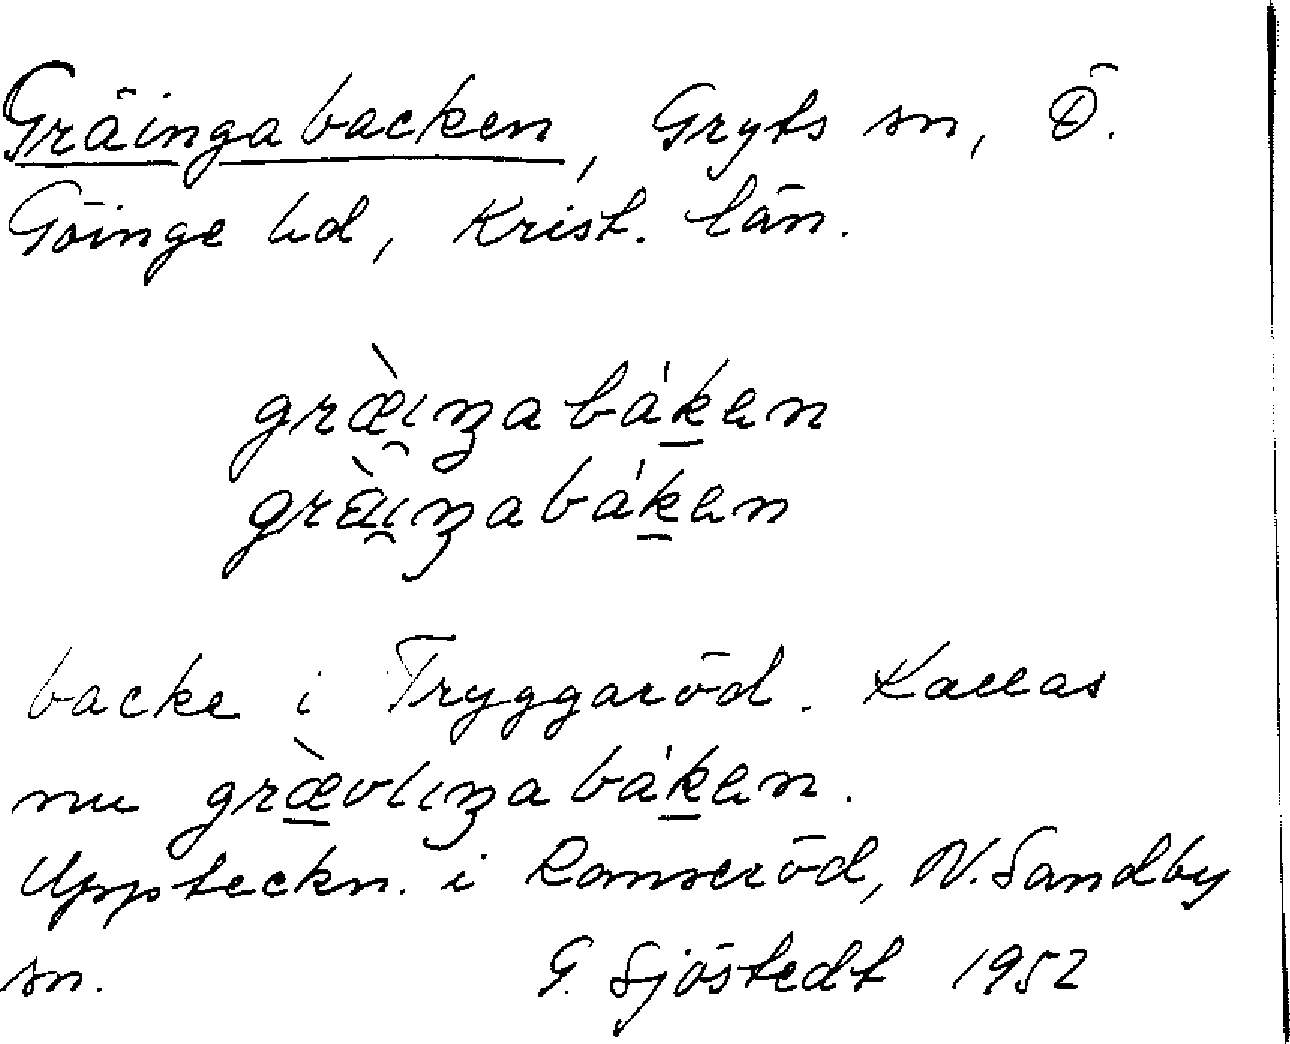 Gräingabacken, Gryts sn, Ö.
Göinge hd, Krist. län.
græ̀ı̯ŋabák̲ən
grä̀ı̯ŋabák̲ən
backe i Tryggaröd. Kallas
nu græ̲̀vlıŋabák̲ən.
Uppteckn. i Ramseröd, N. Sandby
sn. G. Sjöstedt 1952